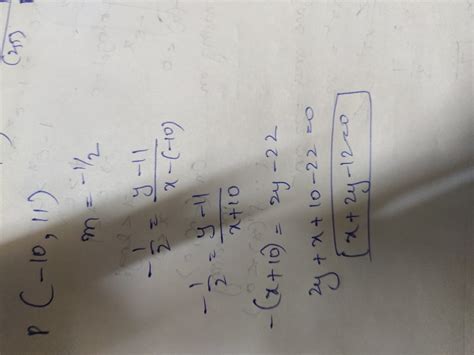 (2,5)
P (-10, 11)
m = -1/2
-1/2 = y-11/x-(-10)
-1/2 = y-11/x+10
-(x+10) = 2y-22
2y+x+10-22=0
x+2y-12=0